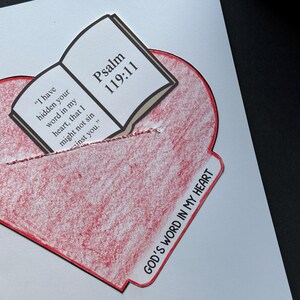 "I have
hidden your
word in my
heart, that I
might not sin
inst you."
Psalm
119:11
GOD'S WORD IN MY HEART